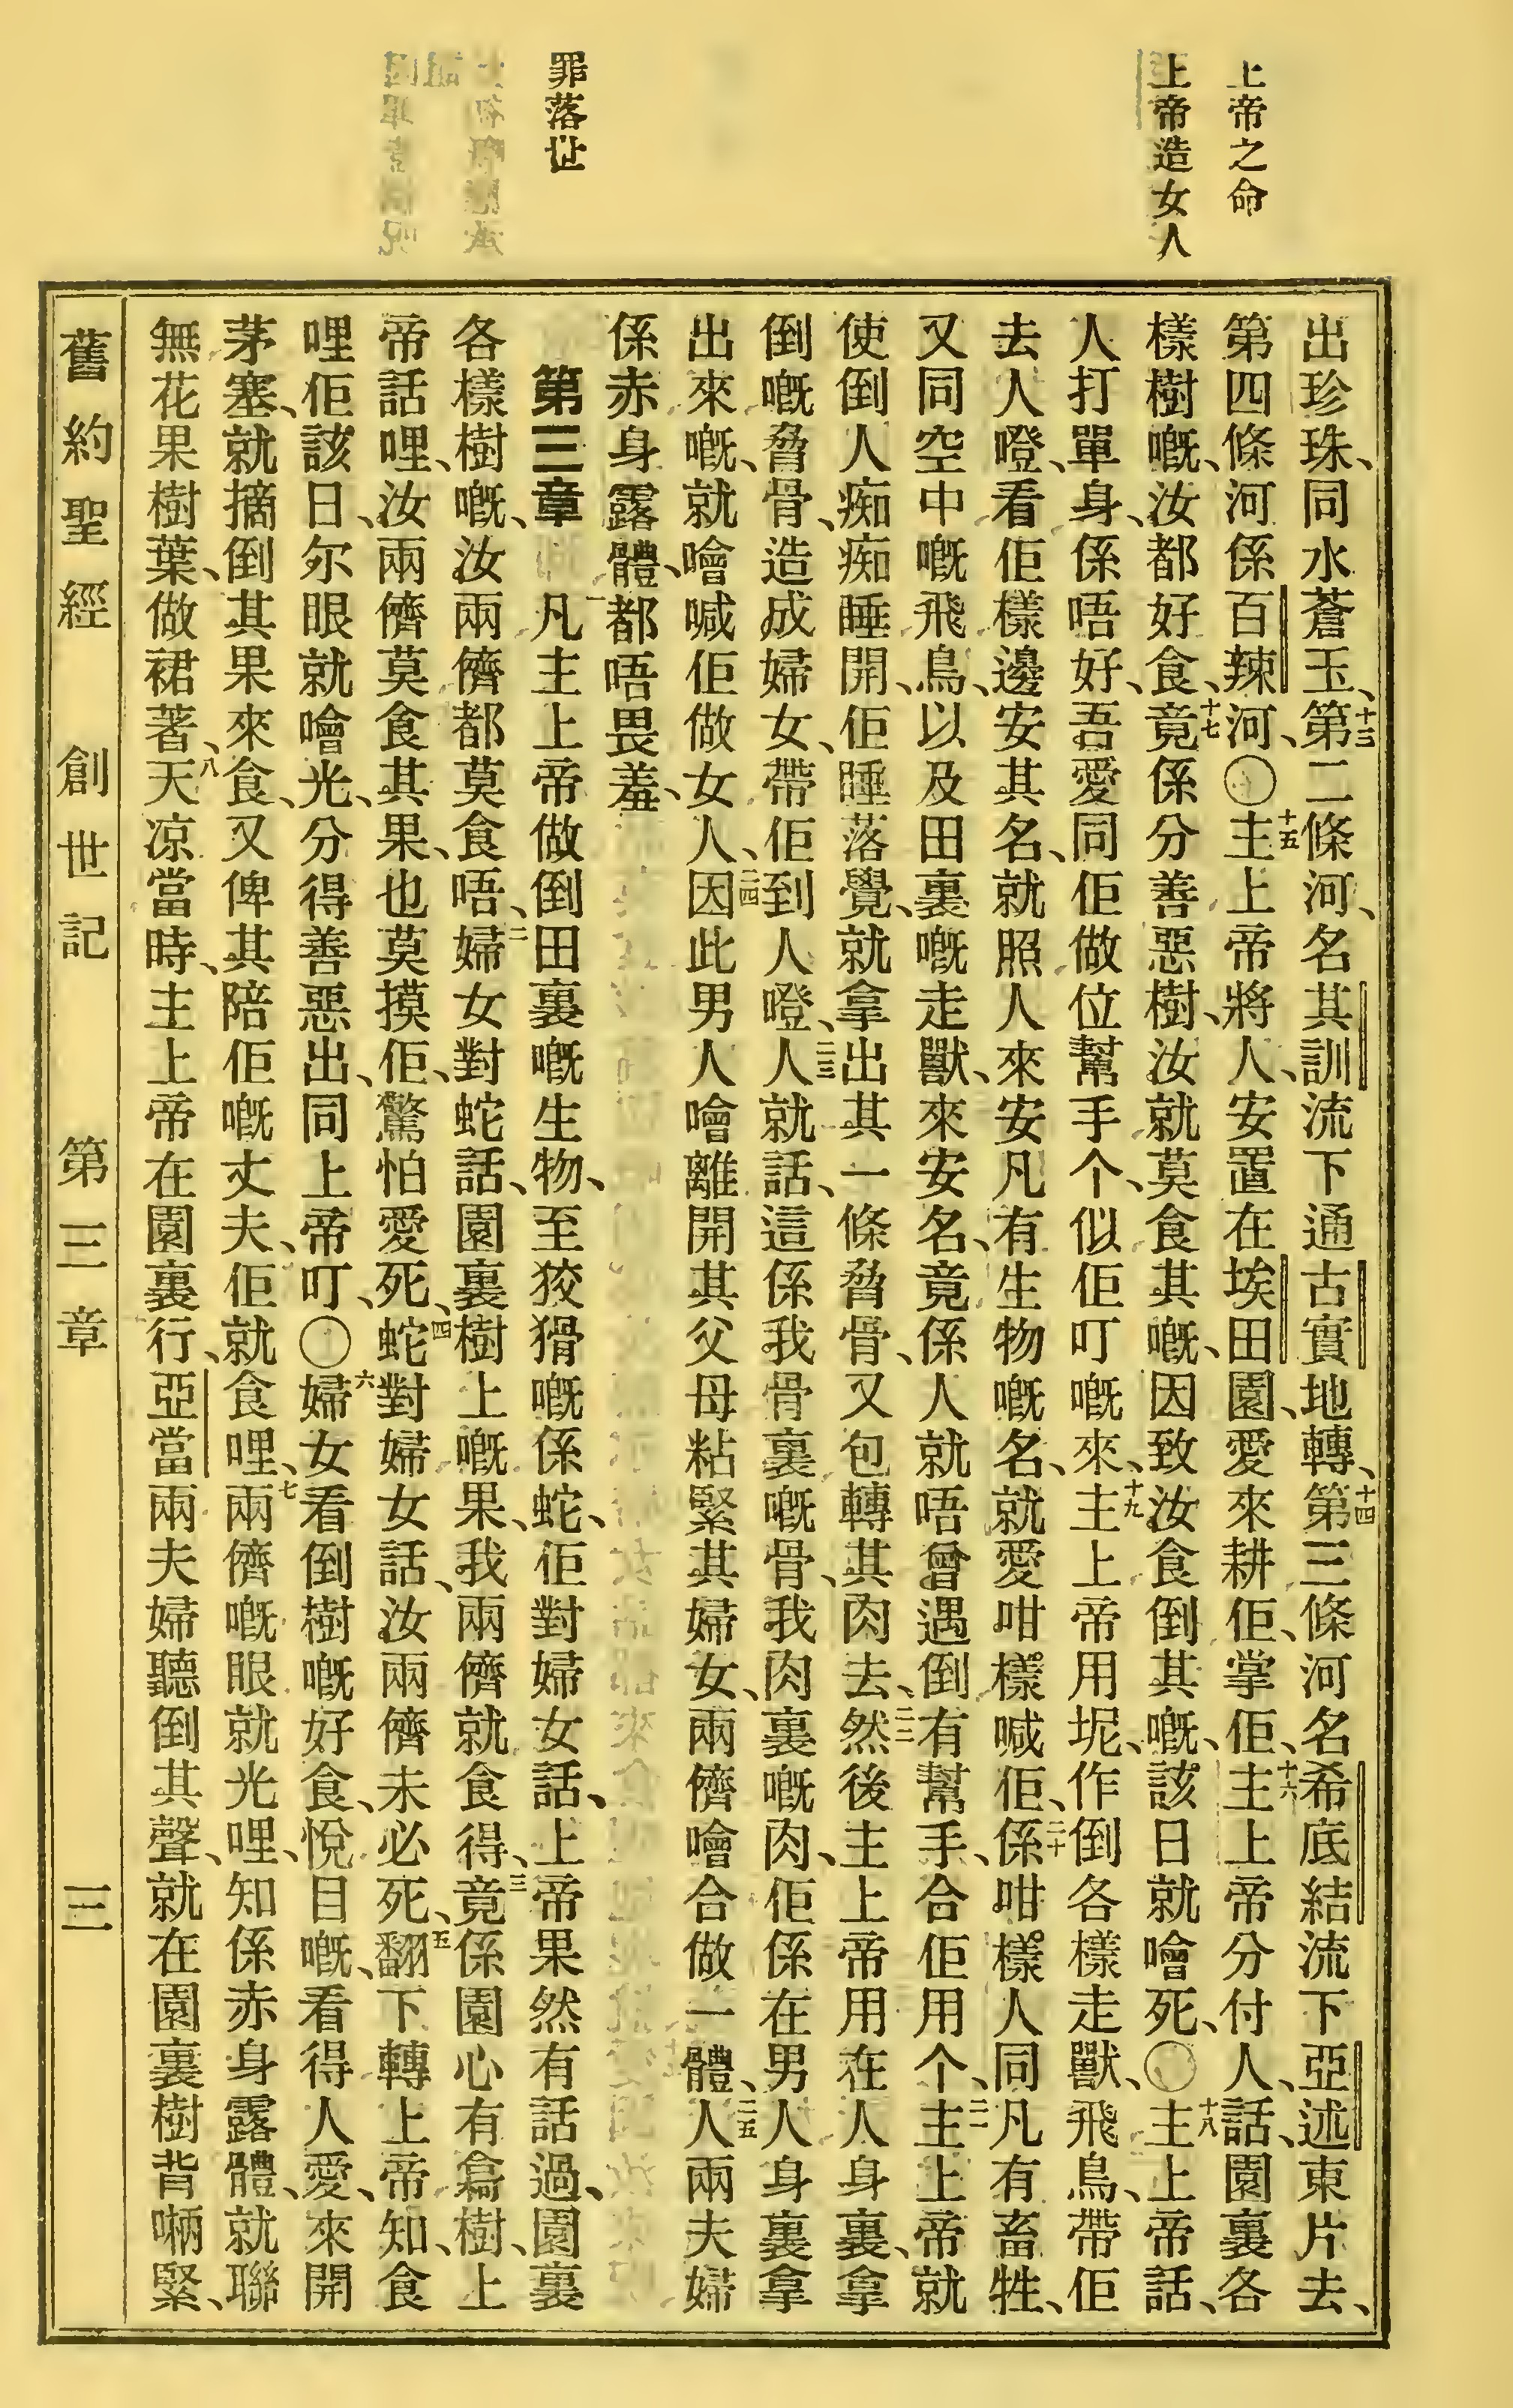 上帝之命
上帝造女人
罪落世
出珍珠、同水蒼玉、十三第二條河、名其訓流下通古實地轉、十四第三條河名希底結流下亞述東片去、
第四條河係百辣河、〇十五主上帝將人、安置在埃田園、愛來耕佢、掌佢、十六主上帝分付人、話、園裏各
樣樹嘅、汝都好食、十七竟係分善惡樹、汝就莫食其嘅、因致汝食倒其嘅、該日就噲死、〇十八主上帝話、
人打單身、係唔好、吾愛同佢做位幫手个、似佢叮嘅來、十九主上帝用坭、作倒各樣走獸、飛鳥、帶佢
去人嶝、看佢樣邊安其名、就照人來安凡有生物嘅名、就愛咁樣喊佢、二十係咁樣人同凡有畜牲、
又同空中嘅飛鳥、以及田裏嘅走獸、來安名、竟係人就唔曾遇倒有幫手、合佢用个、二一主上帝就
使倒人痴痴睡開、佢睡落覺、就拿出其一條脅骨、又包轉其肉去、二二然後主上帝用在人身裏、拿
倒嘅脅骨、造成婦女、帶佢到人嶝、二三人就話、這係我骨裏嘅骨、我肉裏嘅肉、佢係在男人身裏拿
出來嘅、就噲喊佢做女人、二四因此男人噲離開其父母粘緊其婦女、兩儕噲合做一體、二五人兩夫婦
係赤身露體、都唔畏羞、
第三章 一凡主上帝做倒田裏嘅生物、至狡猾嘅係蛇、佢對婦女話、上帝果然有話過、園裏
各樣樹嘅、汝兩儕都莫食唔、二婦女對蛇話、園裏樹上嘅果、我兩儕就食得、三竟係園心有蔸樹、上
帝話哩、汝兩儕莫食其果、也莫摸佢、驚怕愛死、四蛇對婦女話、汝兩儕未必死、五翻下轉上帝知、食
哩佢該日、尔眼就噲光、分得善惡出、同上帝叮、〇六婦女看倒樹嘅好食、悅目嘅、看得人愛、來開
茅塞、就摘倒其果來食、又俾其陪佢嘅丈夫、佢就食哩、七兩儕嘅眼就光哩、知係赤身露體、就聯
無花果樹葉、做裙著、八天凉當時、主上帝在園裏行、亞當兩夫婦聽倒其聲、就在園裏樹背囇緊、
舊約聖經 創世記 第三章 三